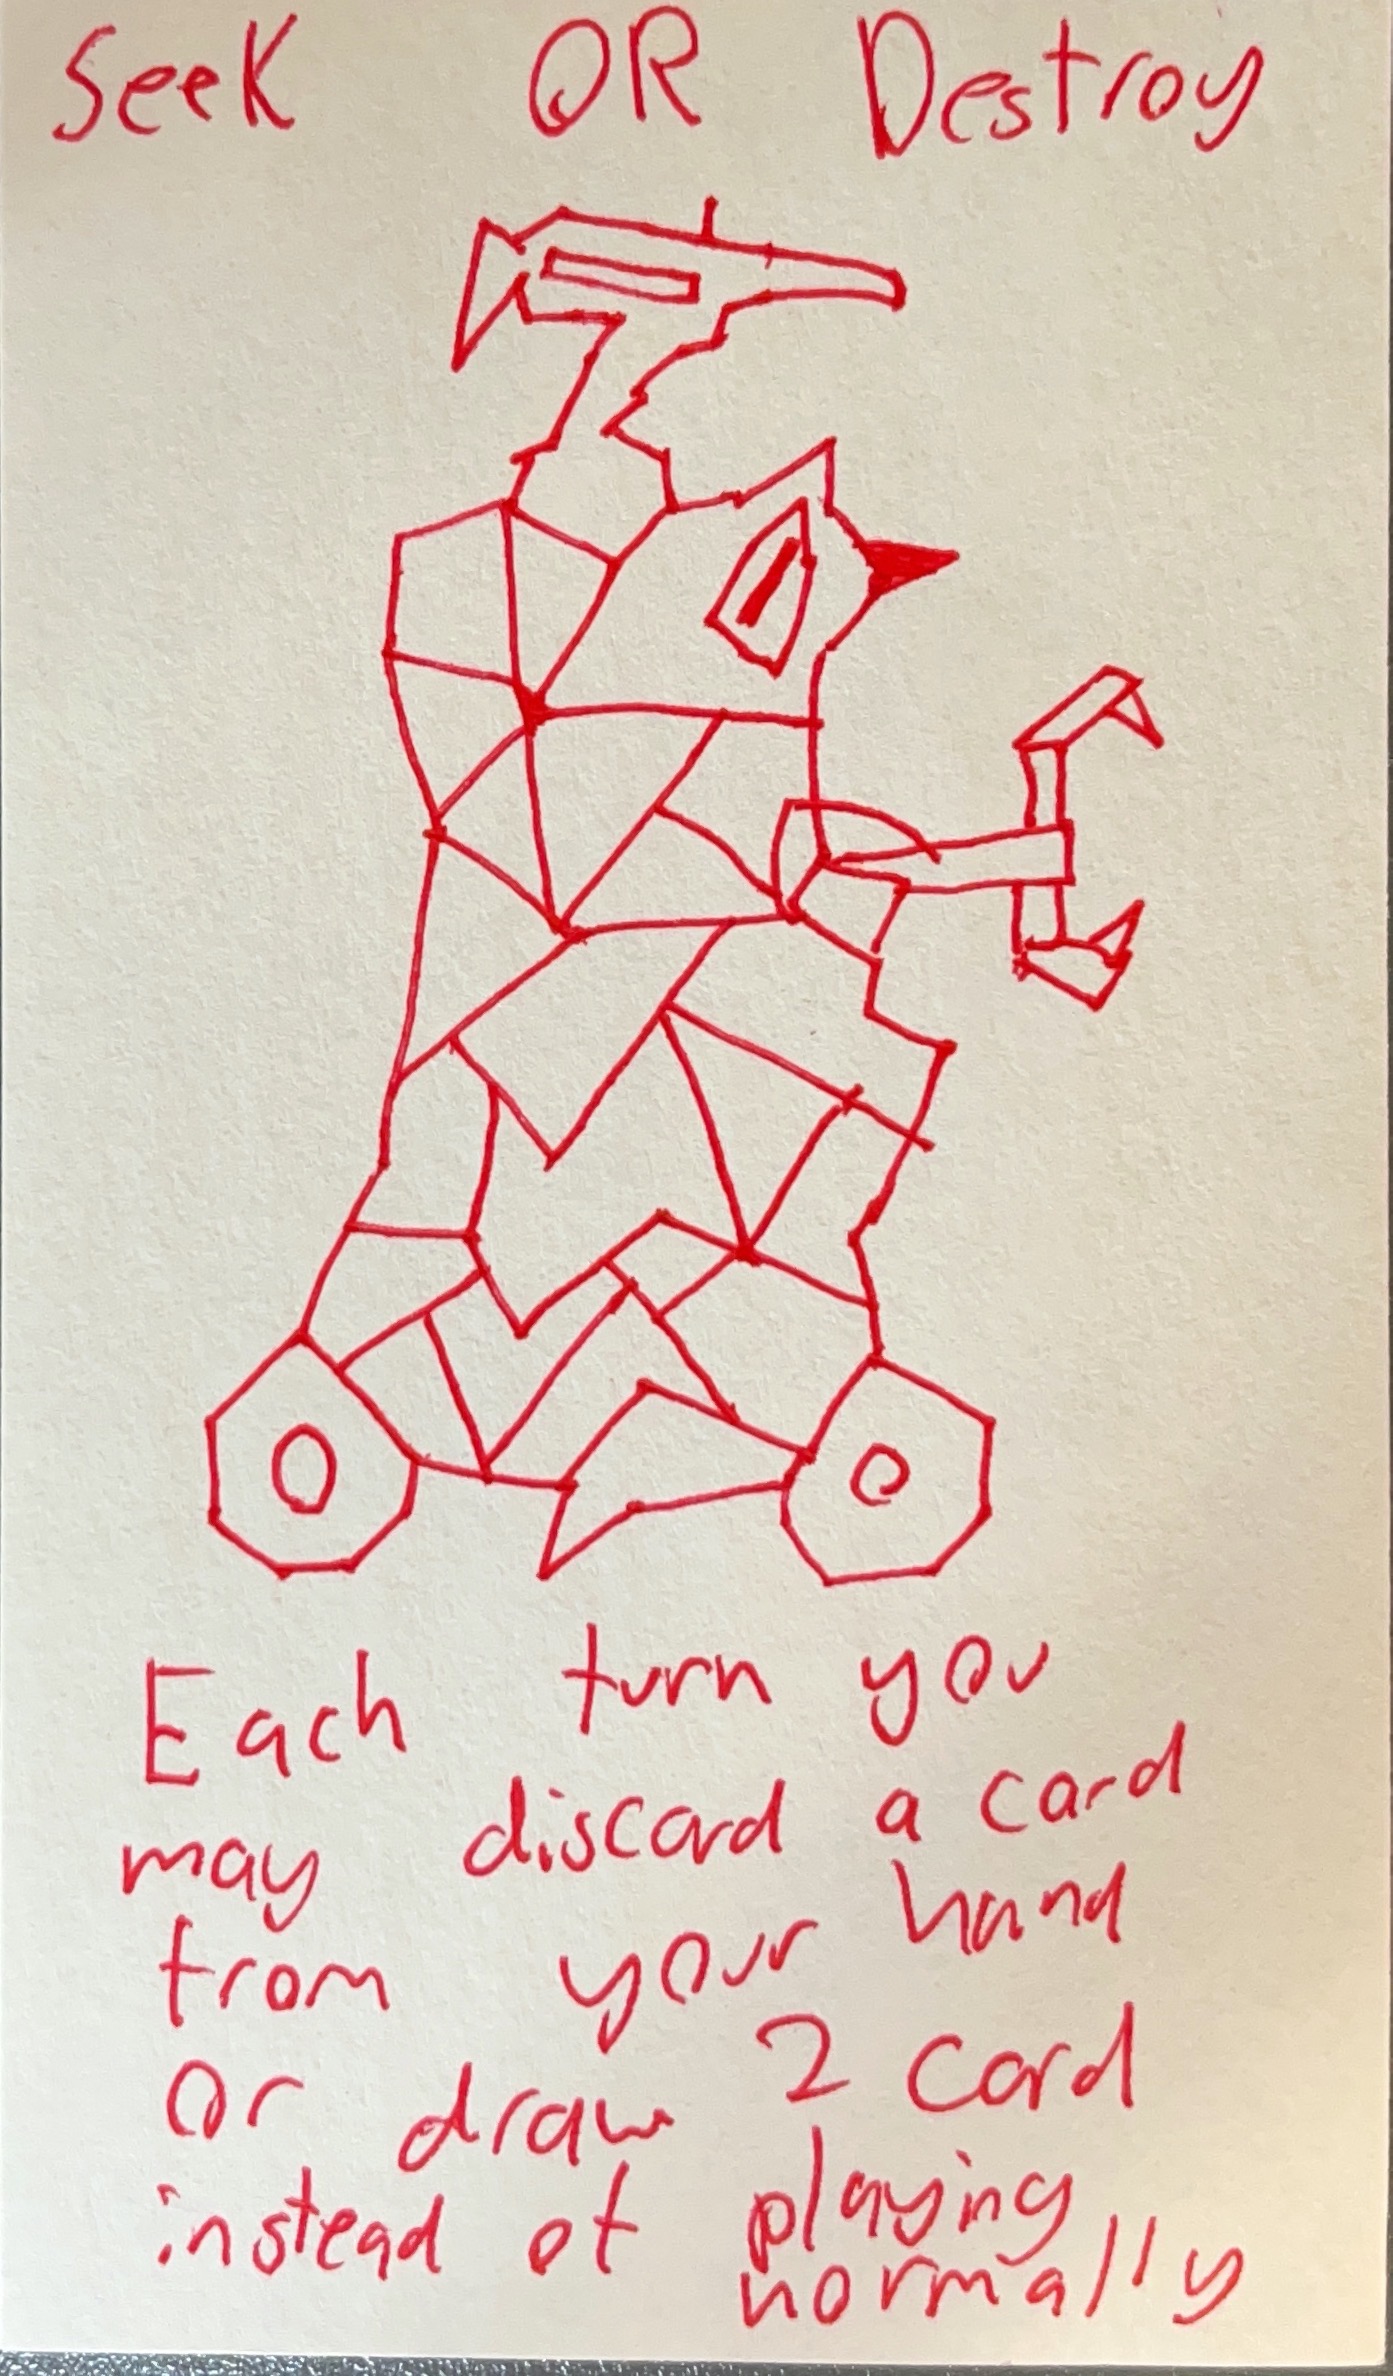 Seek OR Destroy
Each turn you
may discard a card
from your hand
or draw 2 card
instead of playing
normally